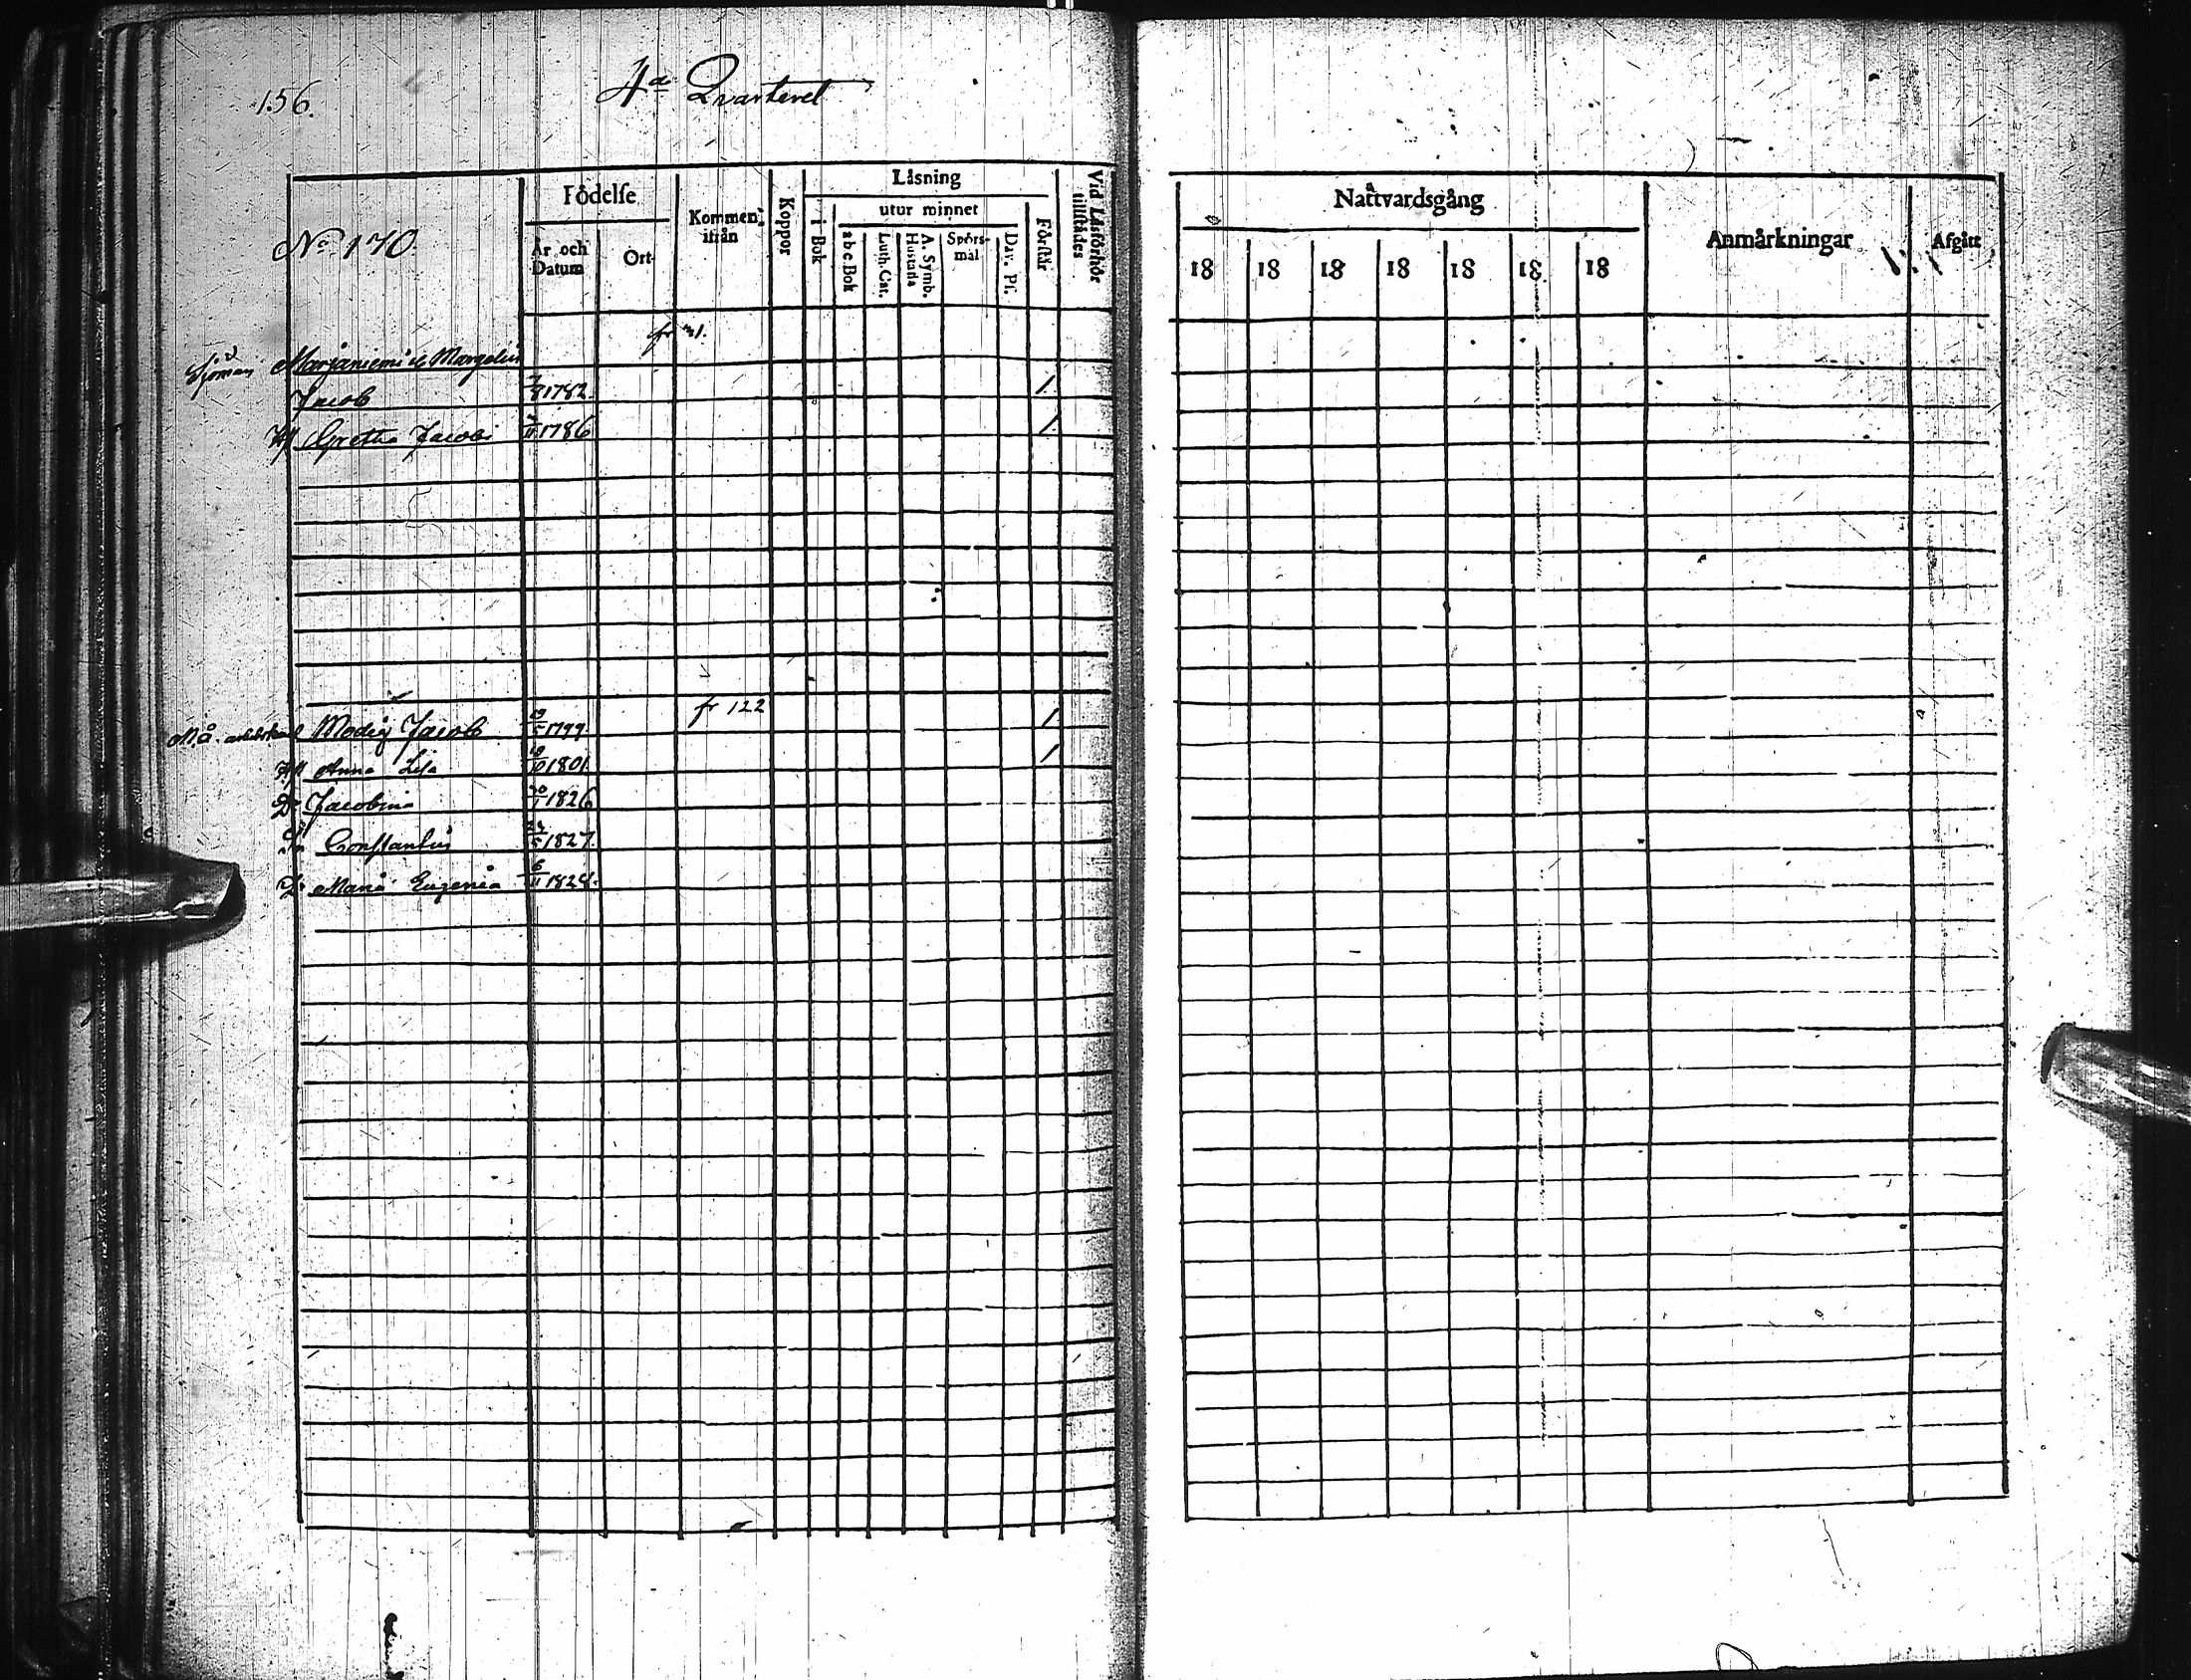 156.
4de Qvarteret
No 170.
Födelse
År och Datum
Ort
Kommen ifrån
Koppor
Läsning
i Bok
utur minnet
a b c Bok
Luth. Cat.
A. Symb. Hustafla
Spörsmål
Dav. Ps.
Förstår
Vid Läsförhör tillstädes
Nattvardsgång
18 18 18 18 18 18 18
Anmärkningar
Afgått
Sjöman Marjaniemi
Jacob 1782 1
H Gretha Jacobs 1786 1
fr 122
Modig Jacob 1799 1
H Anna Lisa 1801 1
D Jacobina 1826
Constantin 1827
D Maria Eugenia 6/11 1824